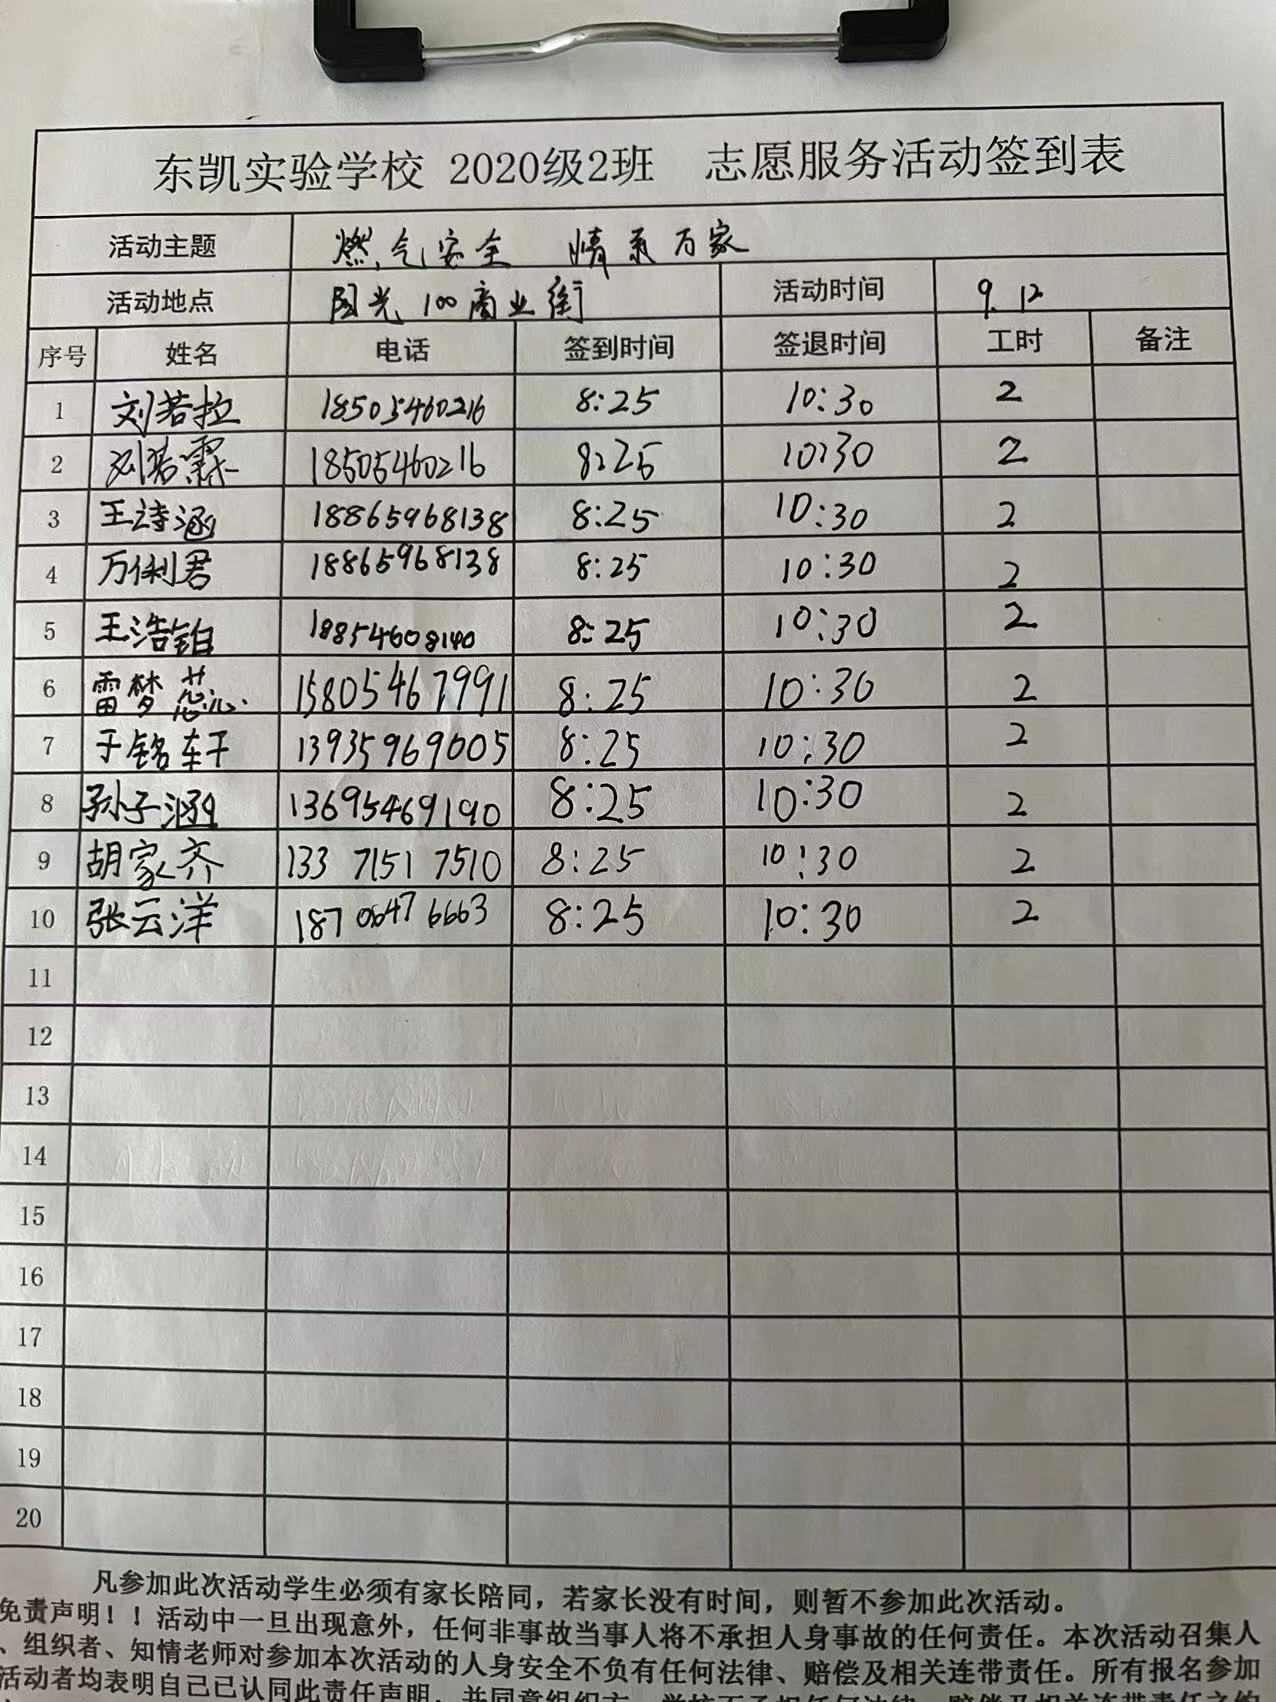 东凯实验学校 2020级2班 志愿服务活动签到表
活动主题 燃气安全 情系万家
活动地点 阳光100商业街 活动时间 9.12
序号 姓名 电话 签到时间 签退时间 工时 备注
1 刘若拉 18505460216 8:25 10:30 2
2 刘若霖 18505460216 8:25 10:30 2
3 王诗涵 18865968138 8:25 10:30 2
4 万俐君 18865968138 8:25 10:30 2
5 王浩铂 18854608140 8:25 10:30 2
6 雷梦蕊 15805467991 8:25 10:30 2
7 于铭轩 13935969005 8:25 10:30 2
8 孙子涵 13695469190 8:25 10:30 2
9 胡家齐 133 7151 7510 8:25 10:30 2
10 张云洋 187 0647 6663 8:25 10:30 2
11
12
13
14
15
16
17
18
19
20
凡参加此次活动学生必须有家长陪同，若家长没有时间，则暂不参加此次活动。
免责声明！！活动中一旦出现意外，任何非事故当事人将不承担人身事故的任何责任。本次活动召集人
、组织者、知情老师对参加本次活动的人身安全不负有任何法律、赔偿及相关连带责任。所有报名参加
活动者均表明自己已认同此责任声明，并同意组织方、学校不承担任何法律、赔偿及相关连带责任之约